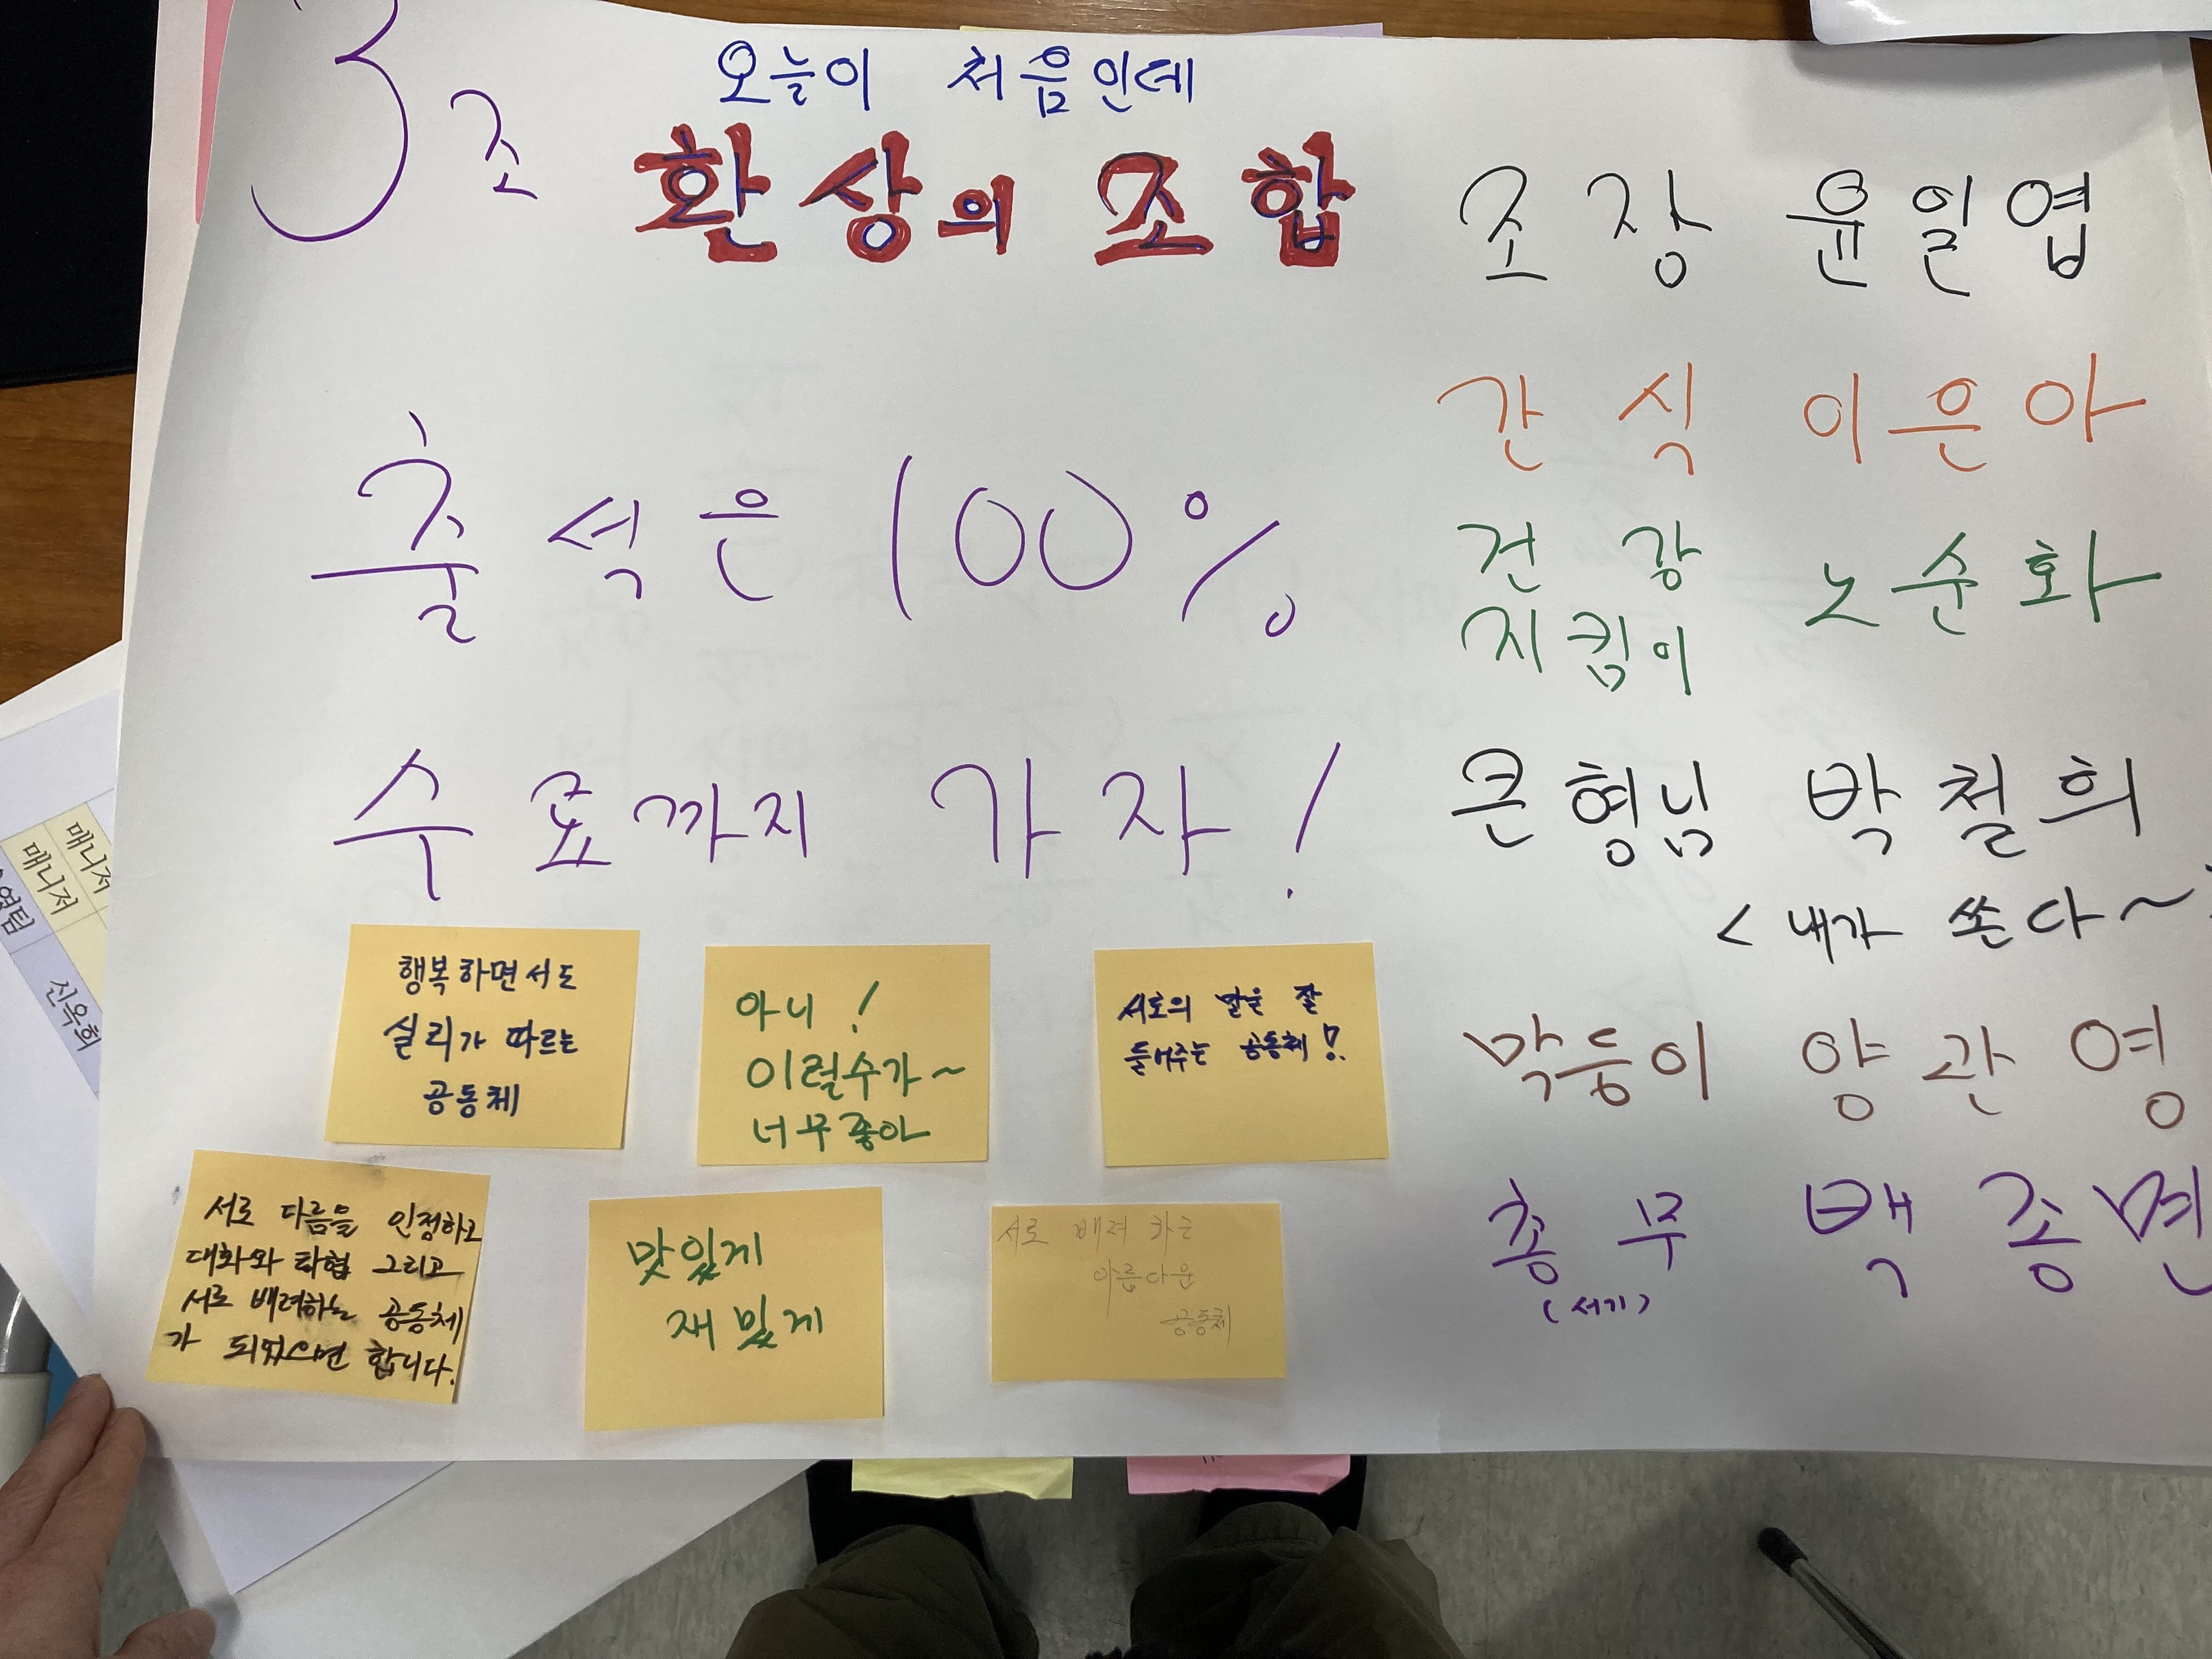 3조
오늘이 처음인데
환상의 조합
출석은 100%
수료까지 가자!
조장 윤일엽
간식 이은아
건강
지킴이 노순화
큰형님 박철희
< 내가 쏜다~
막둥이 양관영
총무 백종면
(서기)
행복하면서도
실리가 따르는
공동체
아니!
이럴수가~
너무좋아
서로의 말을 잘
들어주는 공동체!
서로 다름을 인정하고
대화와 타협 그리고
서로 배려하는 공동체
가 되었으면 합니다.
맛있게
재밌게
서로 배려 하는
아름다운
공동체
매니저
매니저
신옥희